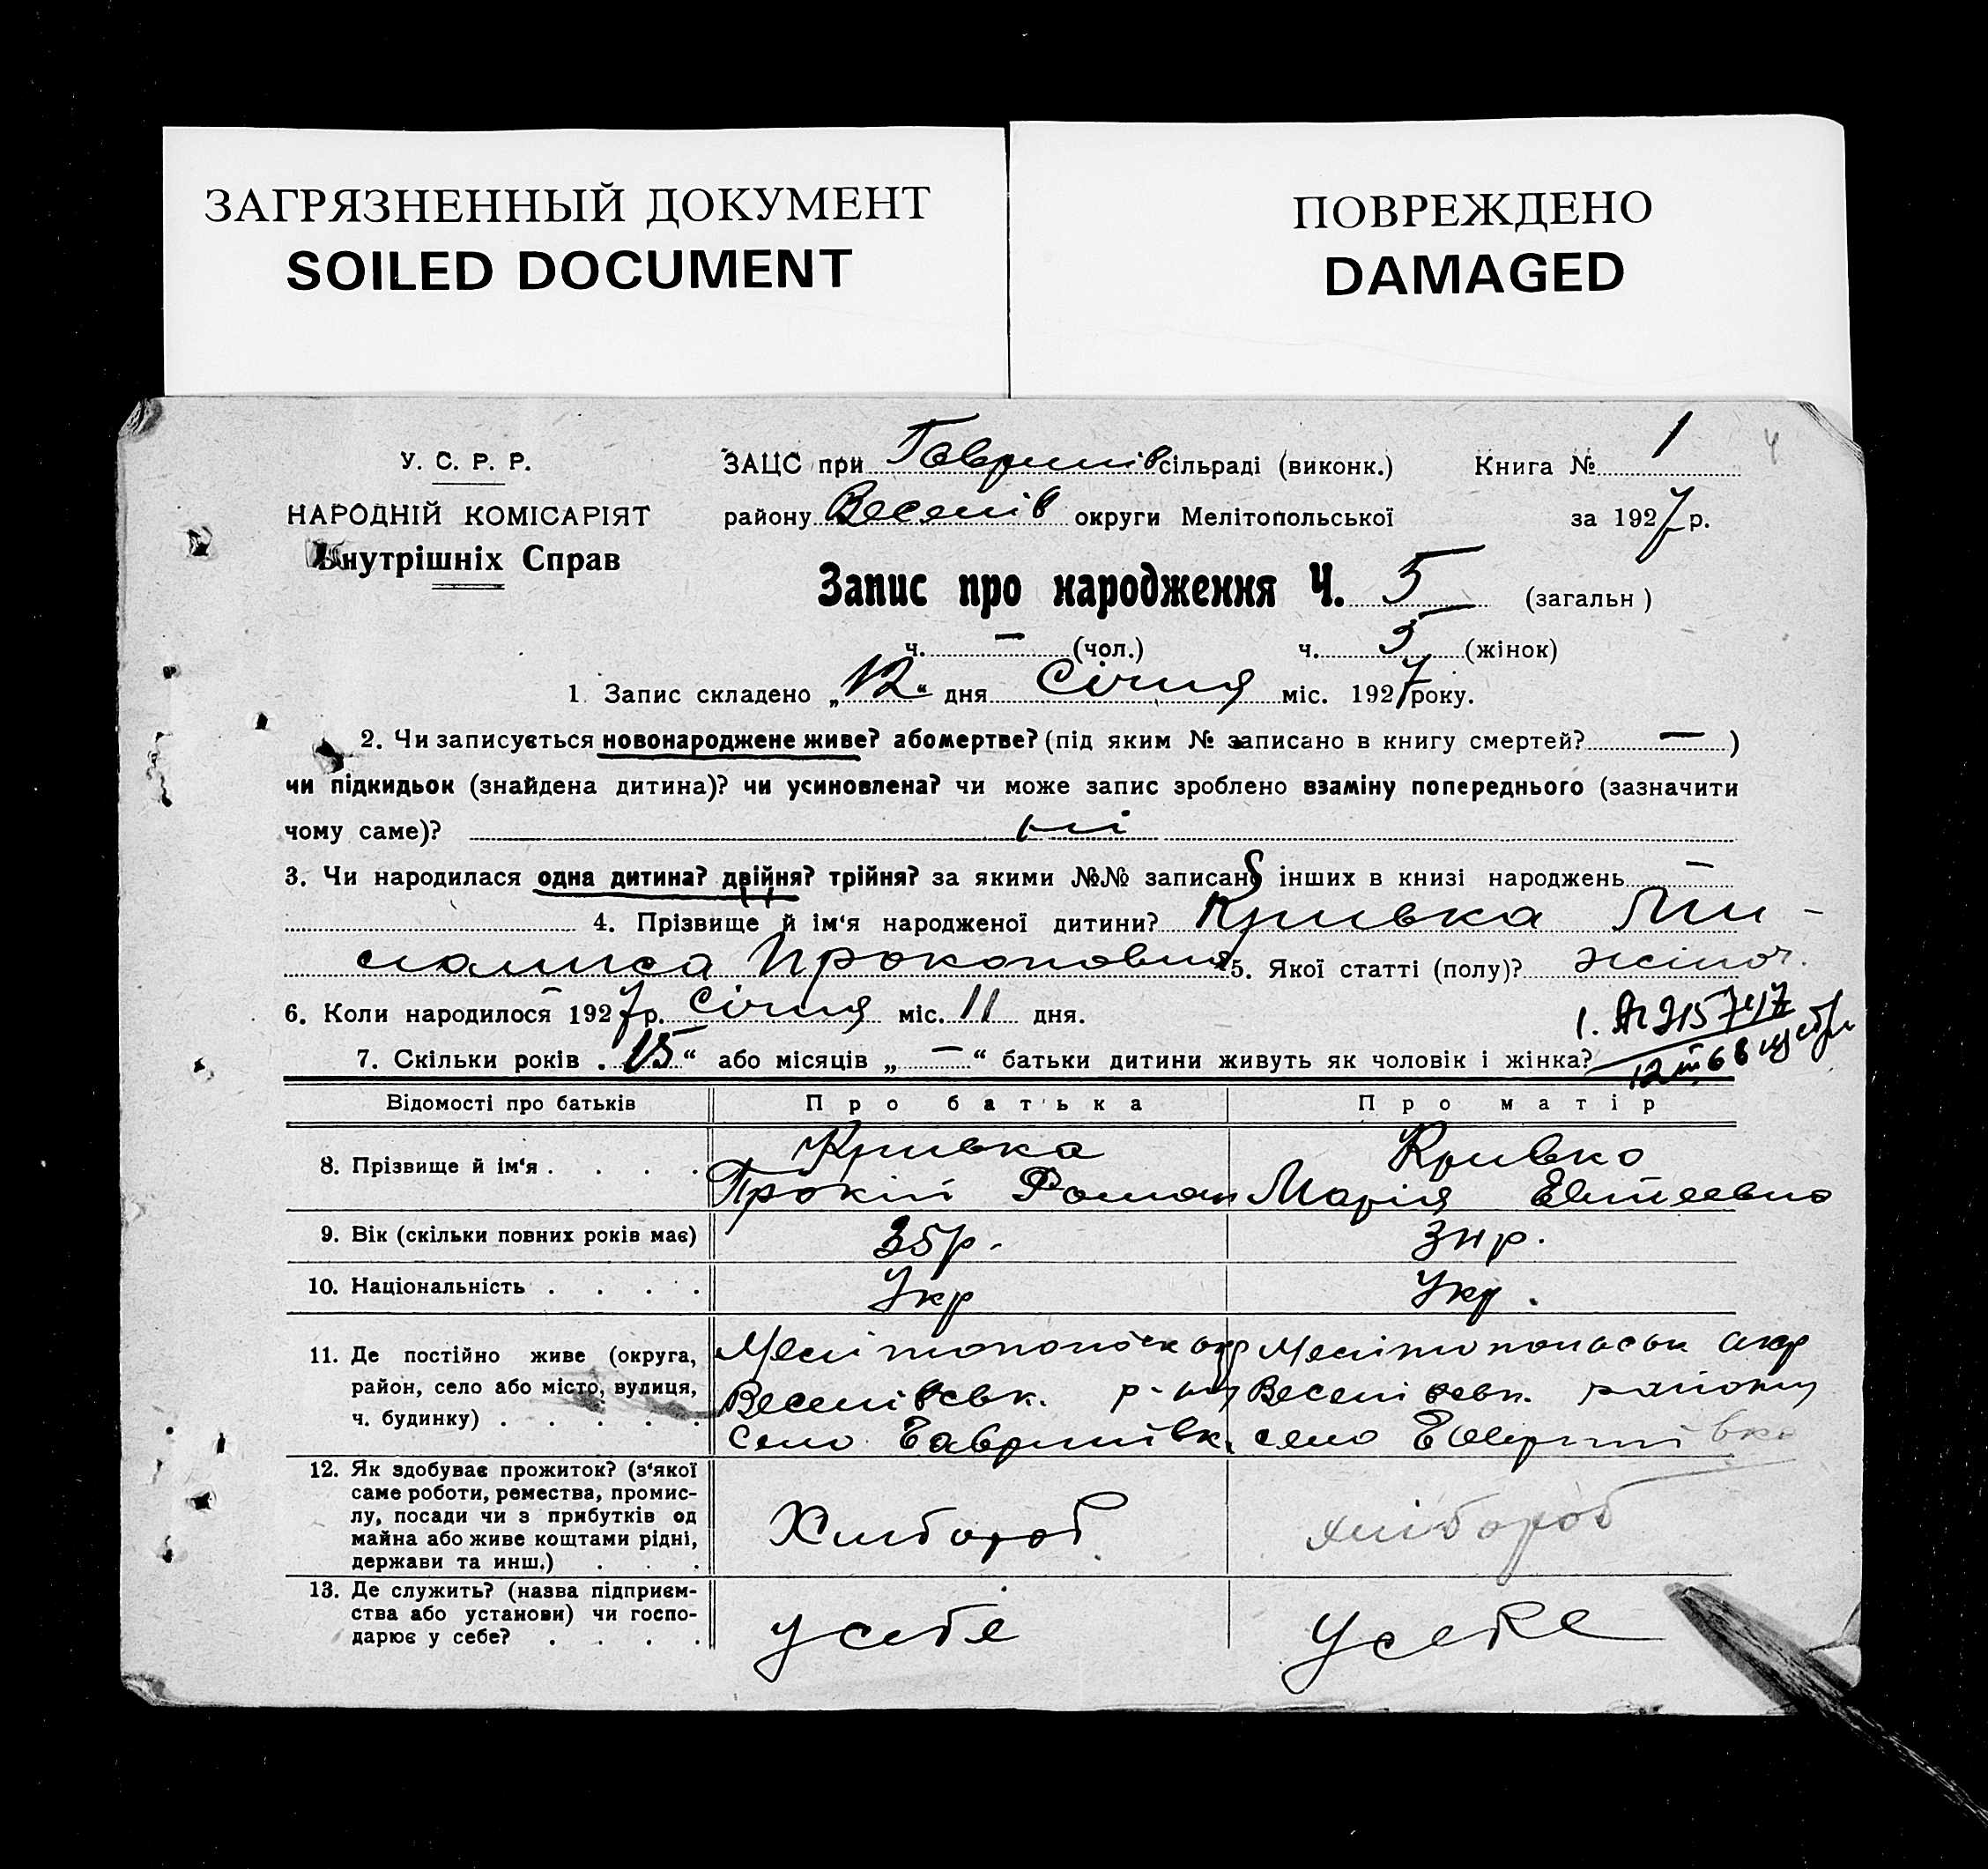 ЗАГРЯЗНЕННЫЙ ДОКУМЕНТ
SOILED DOCUMENT
ПОВРЕЖДЕНО
DAMAGED
У. С. Р. Р.
НАРОДНІЙ КОМІСАРІЯТ
Внутрішніх Справ
ЗАЦС при Гаврилів сільраді (виконк.) Книга № 1
4
району Веселів округи Мелітопольської за 1927 р.
Запис про народження Ч. 5 (загальн)
ч. — (чол.) ч. 5 (жінок)
1. Запис складено „12“ дня Січня міс. 1927 року.
2. Чи записується новонароджене живе? або мертве? (під яким № записано в книгу смертей? — )
чи підкидьок (знайдена дитина)? чи усиновлена? чи може запис зроблено взаміну попереднього (зазначити
чому саме)? ні
3. Чи народилася одна дитина? двійня? трійня? за якими №№ записано інших в книзі народжень —
4. Прізвище й ім‘я народженої дитини? Кривка
Прокоповна 5. Якої статті (полу)? жіноч.
6. Коли народилося 1927 р. Січня міс. 11 дня.
7. Скільки років „15“ або місяців „—“ батьки дитини живуть як чоловік і жінка?
Відомості про батьків Про батька Про матір
8. Прізвище й ім‘я . . . . Кривка Кривко
Прокій Роман Марія
9. Вік (скільки повних років має) 35р. 34р.
10. Національність . . . . Укр Укр.
11. Де постійно живе (округа,
район, село або місто, вулиця,
ч. будинку) . . . . .
Веселівськ. р-ну Веселівськ. району
село Гаврилівк. село
12. Як здобуває прожиток? (з‘якої
саме роботи, ремества, промис-
лу, посади чи з прибутків од
майна або живе коштами рідні,
держави та инш.) . . .
Хлібороб хлібороб
13. Де служить? (назва підприєм-
ства або установи) чи госпо-
дарює у себе? . . . .
У себе У себе